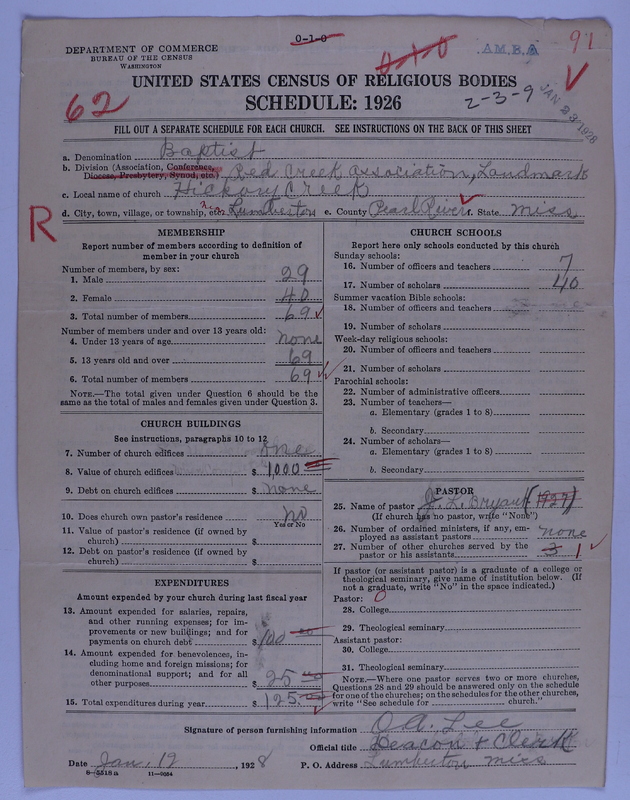 0-1-0
DEPARTMENT OF COMMERCE
BUREAU OF THE CENSUS
WASHINGTON
0-1-0
A.M.B.A
91
UNITED STATES CENSUS OF RELIGIOUS BODIES
62
SCHEDULE: 1926
2-3-9
JAN 23 1928
FILL OUT A SEPARATE SCHEDULE FOR EACH CHURCH. SEE INSTRUCTIONS ON THE BACK OF THIS SHEET
a. Denomination Baptist
b. Division (Association, Conference, Diocese, Presbytery, Synod, etc.) Red Creek association, Landmark
c. Local name of church Hickory Creek
d. City, town, village, or township, etc. Lumberton e. County Pearl River f. State Miss
R
MEMBERSHIP
Report number of members according to definition of
member in your church
Number of members, by sex:
1. Male 29
2. Female 40
3. Total number of members 69
Number of members under and over 13 years old:
4. Under 13 years of age none
5. 13 years old and over 69
6. Total number of members 69
NOTE.—The total given under Question 6 should be the
same as the total of males and females given under Question 3.
CHURCH BUILDINGS
See instructions, paragraphs 10 to 12
7. Number of church edifices
8. Value of church edifices $ 1,000
9. Debt on church edifices $ none
10. Does church own pastor's residence no
Yes or No
11. Value of pastor's residence (if owned by
church) $
12. Debt on pastor's residence (if owned by
church) $
EXPENDITURES
Amount expended by your church during last fiscal year
13. Amount expended for salaries, repairs,
and other running expenses; for im-
provements or new buildings; and for
payments on church debt $ 100
14. Amount expended for benevolences, in-
cluding home and foreign missions; for
denominational support; and for all
other purposes $ 25
15. Total expenditures during year $ 125
CHURCH SCHOOLS
Report here only schools conducted by this church
Sunday schools:
16. Number of officers and teachers 7
17. Number of scholars 40
Summer vacation Bible schools:
18. Number of officers and teachers
19. Number of scholars
Week-day religious schools:
20. Number of officers and teachers
21. Number of scholars
Parochial schools:
22. Number of administrative officers
23. Number of teachers—
a. Elementary (grades 1 to 8)
b. Secondary
24. Number of scholars—
a. Elementary (grades 1 to 8)
b. Secondary
PASTOR
25. Name of pastor J. L. Bryant (1927)
(If church has no pastor, write "None")
26. Number of ordained ministers, if any, em-
ployed as assistant pastors none
27. Number of other churches served by the
pastor or his assistants 3 1
If pastor (or assistant pastor) is a graduate of a college or
theological seminary, give name of institution below. (If
not a graduate, write "No" in the space indicated.)
Pastor: 0
28. College
29. Theological seminary
Assistant pastor:
30. College
31. Theological seminary
NOTE.—Where one pastor serves two or more churches,
Questions 28 and 29 should be answered only on the schedule
for one of the churches; on the schedules for the other churches,
write "See schedule for church."
Signature of person furnishing information O.A. Lee
Official title Deacon + Clerk
Date Jan. 19, 1928 P. O. Address Lumberton Miss
8-5518a 11-9054